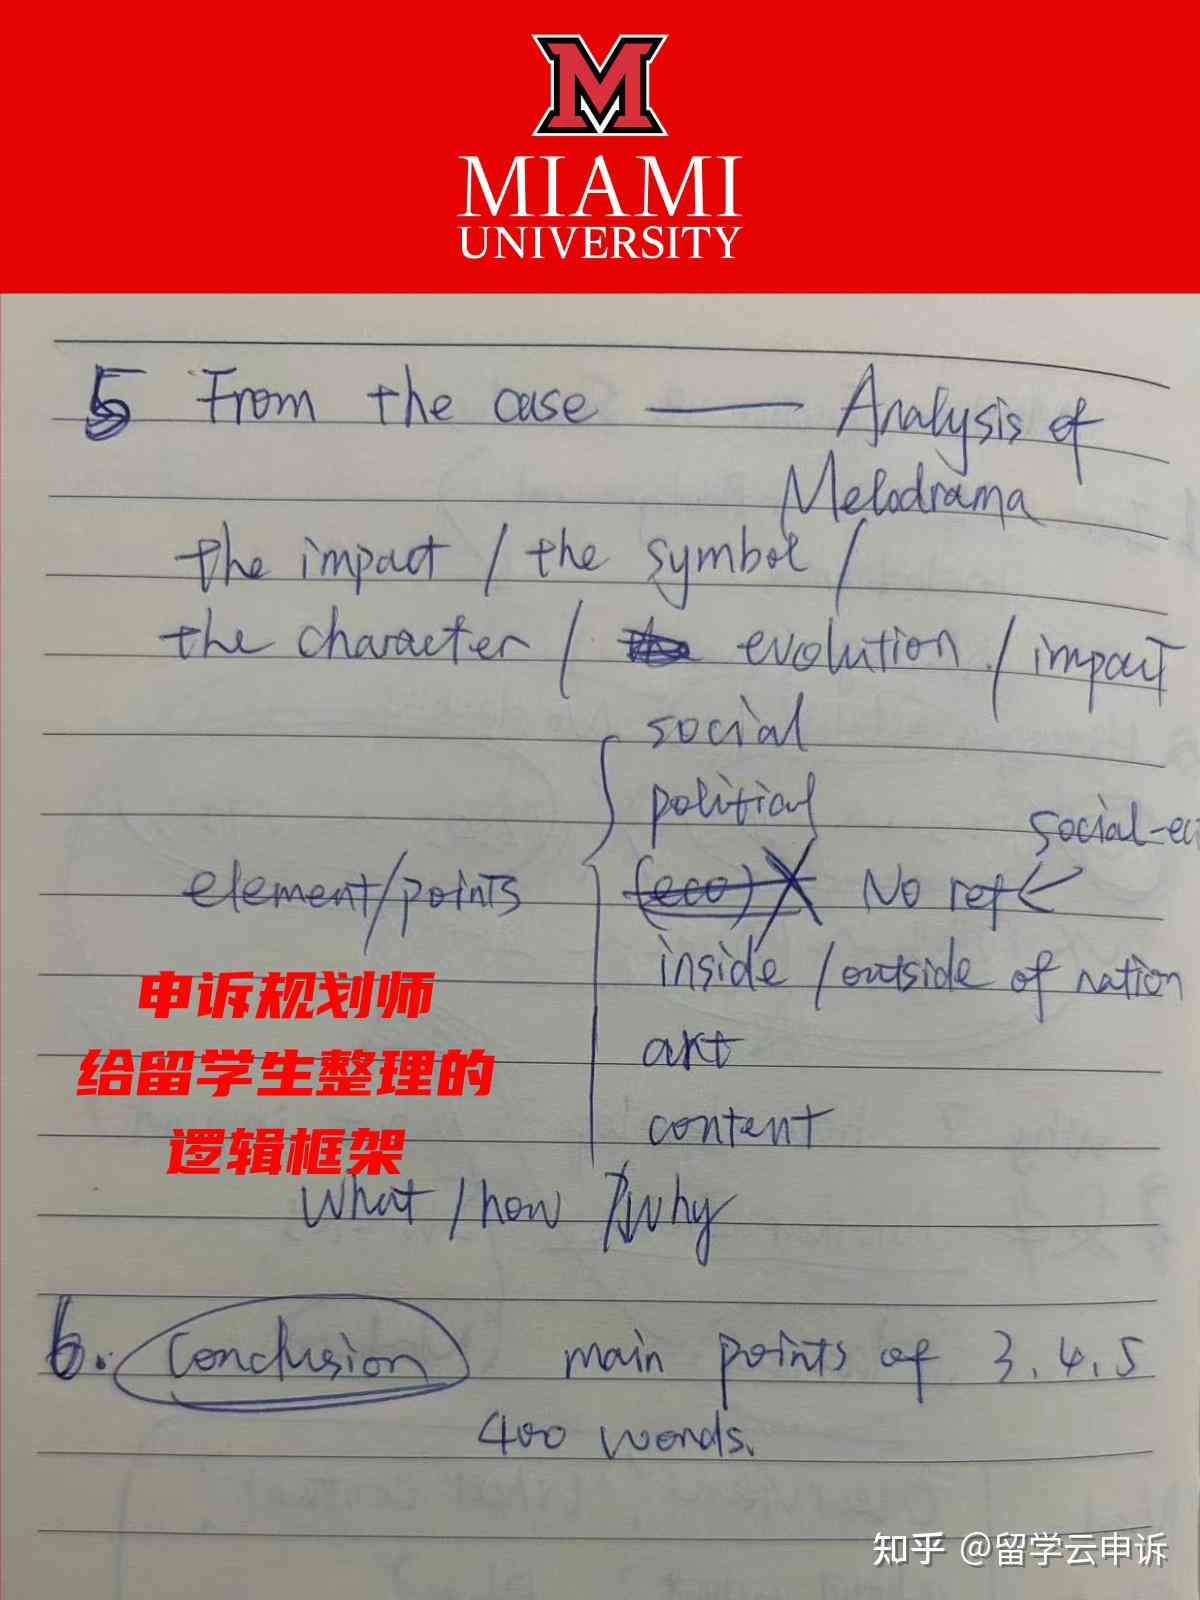 M
MIAMI
UNIVERSITY
5 From the case — Analysis of
Melodrama
the impact / the symbol /
the character / evolution / impact
social
political
social-ec
element/points (eco) No ref <
inside / outside of nation
申诉规划师
art
给留学生整理的
content
逻辑框架
what / how / why
6. Conclusion main points of 3.4.5
400 words.
知乎 @留学云申诉